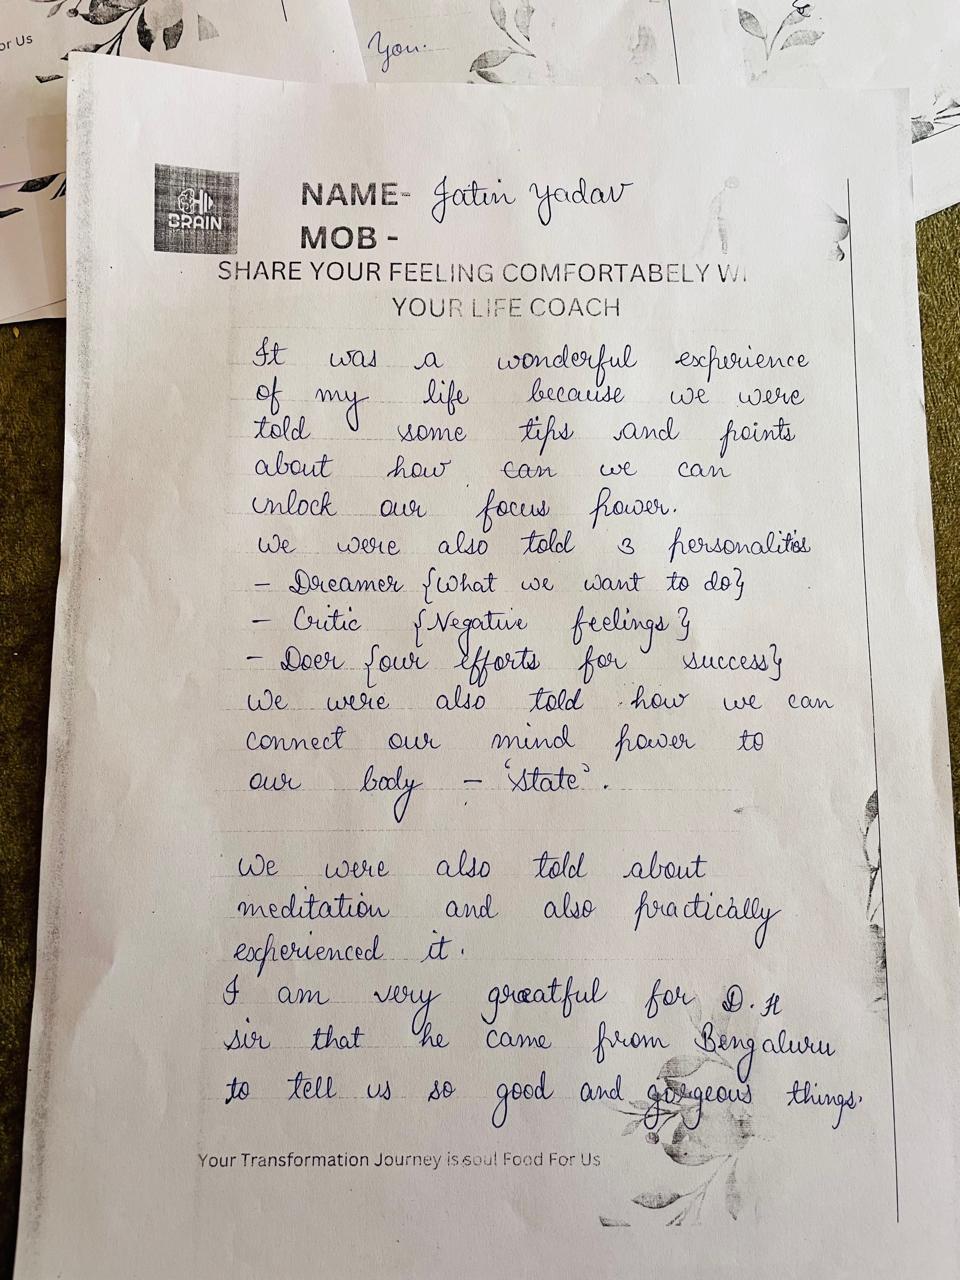 or Us
You.
BRAIN
NAME- Jatin Yadav
MOB -
SHARE YOUR FEELING COMFORTABELY WI
YOUR LIFE COACH
It was a wonderful experience
of my life because we were
told some tips and points
about how can we can
unlock our focus power.
We were also told 3 personalities
- Dreamer {What we want to do}
- Critic {Negative feelings}
- Doer {our efforts for success}
We were also told how we can
connect our mind power to
our body - 'State'.
We were also told about
meditation and also practically
experienced it.
I am very greatful for D.H
sir that he came from Bengaluru
to tell us so good and gorgeous things.
Your Transformation Journey is soul Food For Us